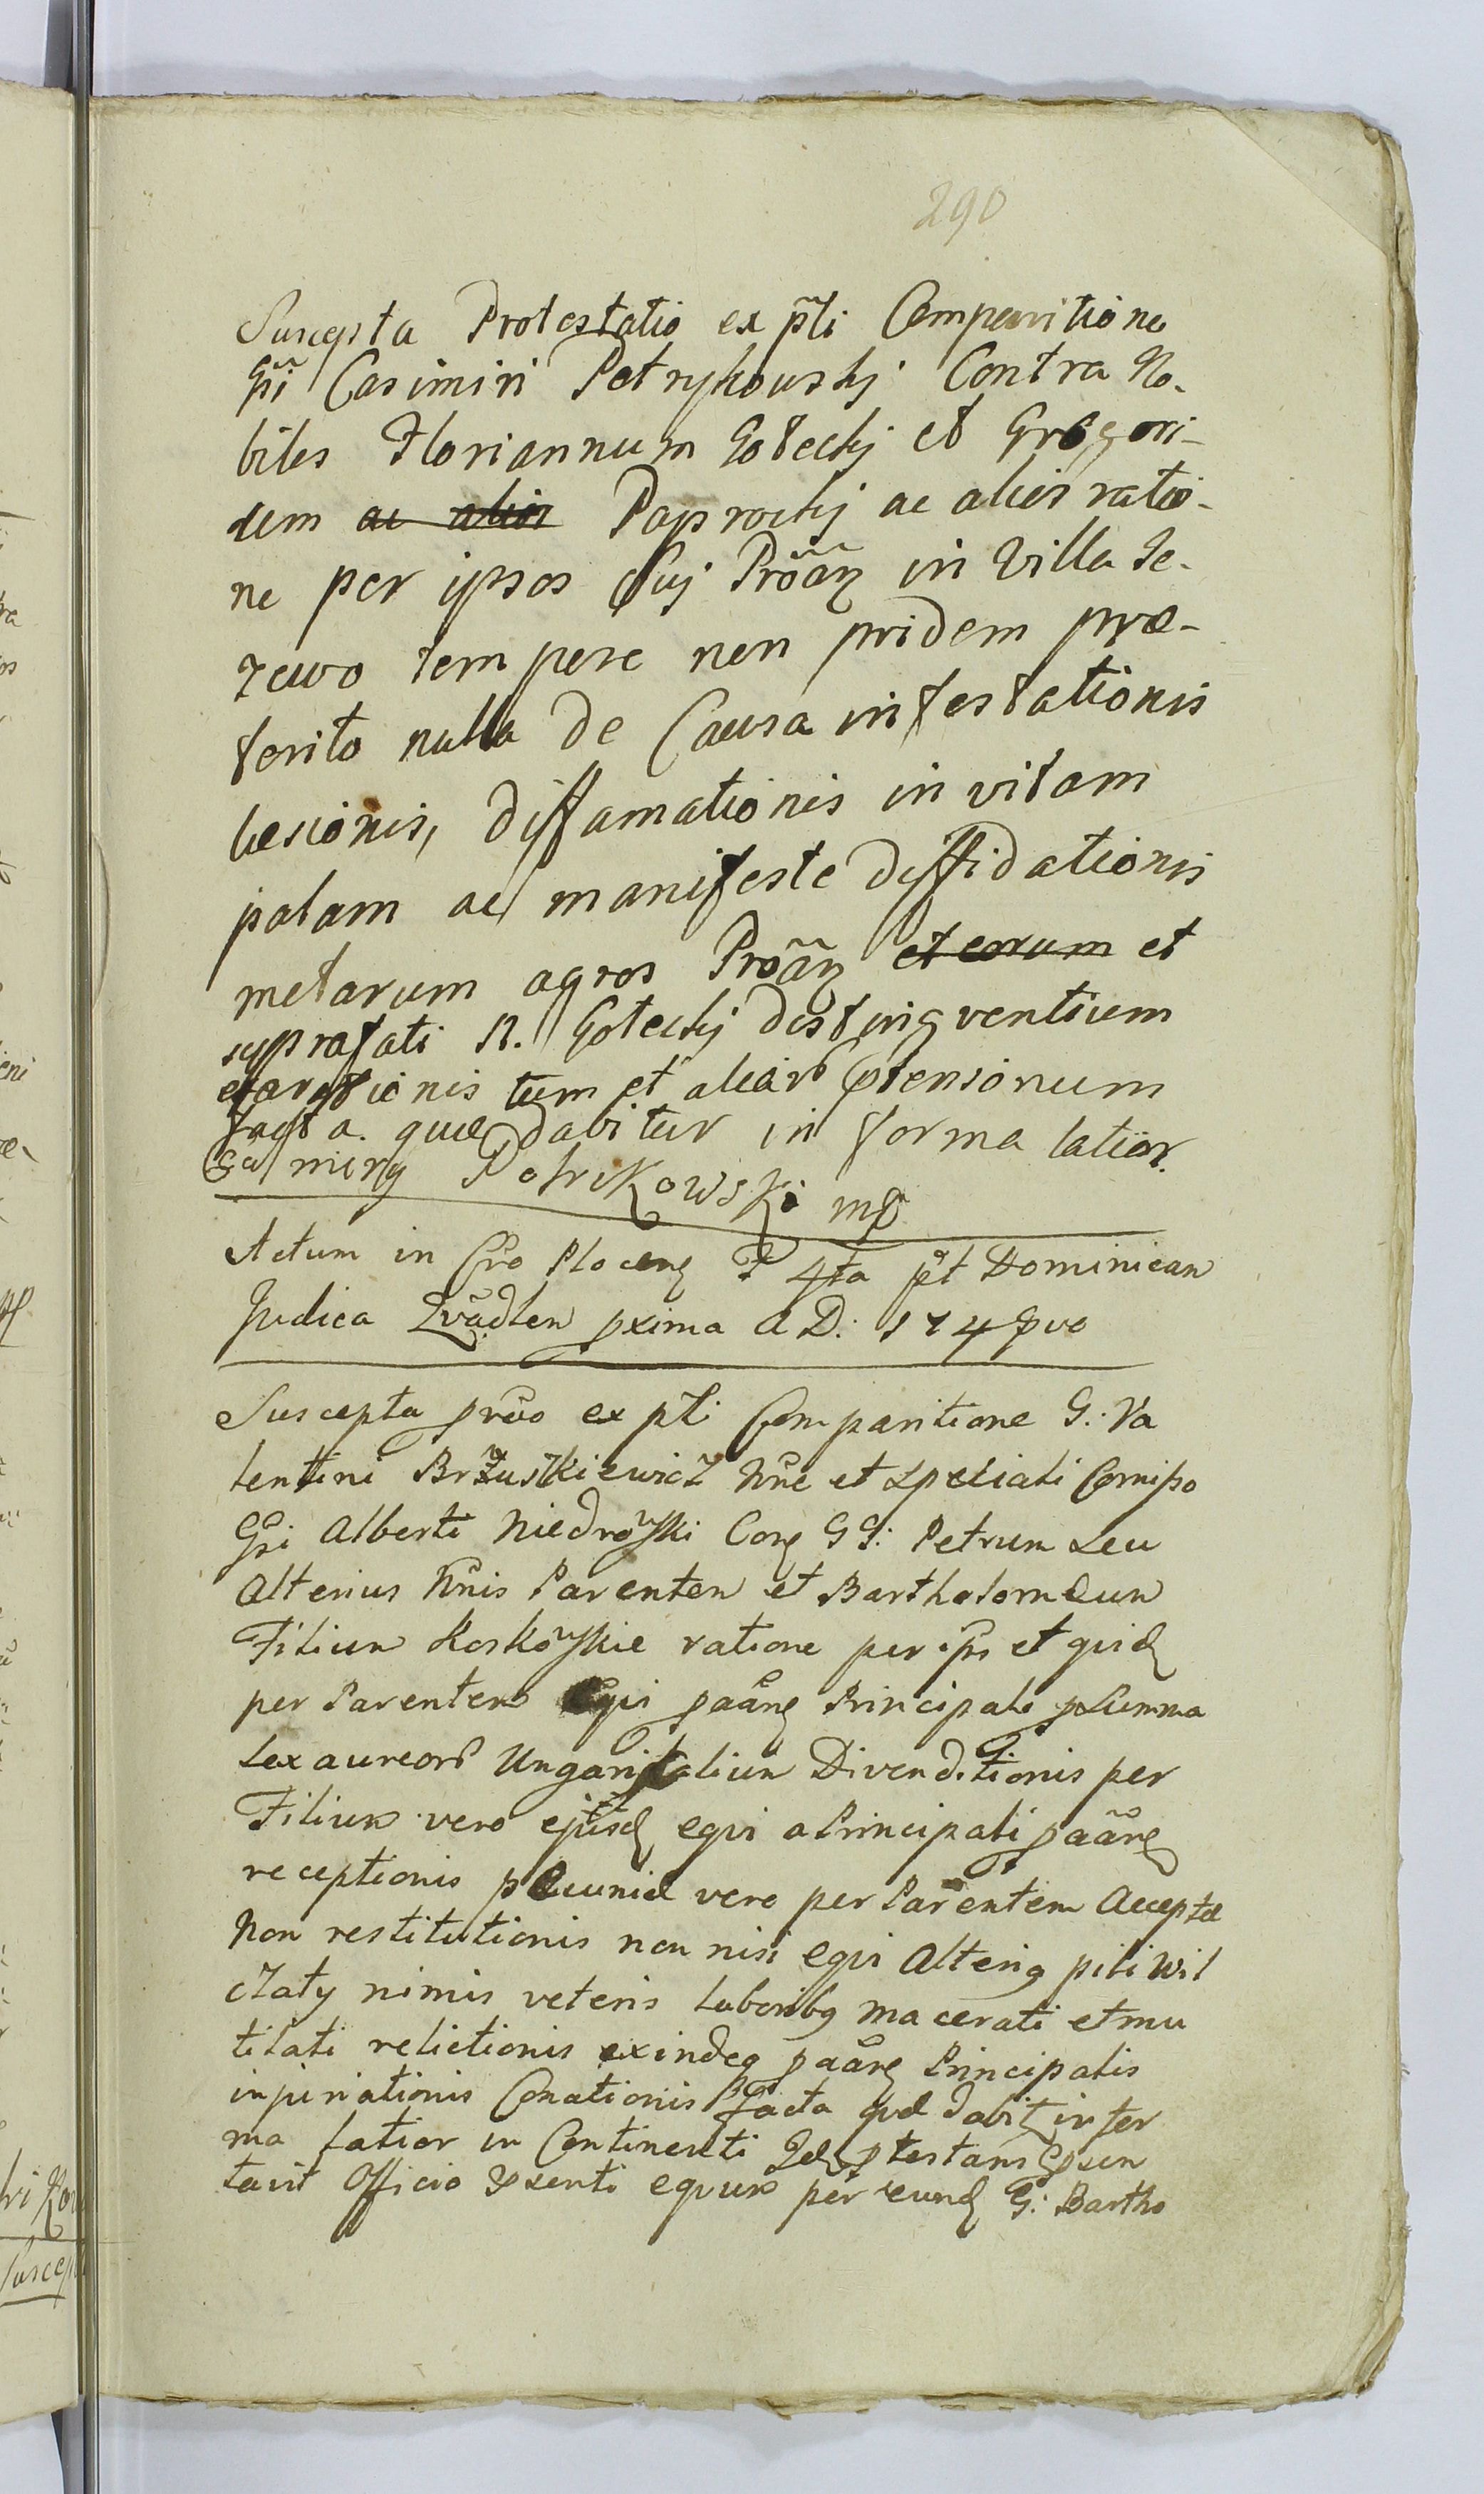 290
Suscepta Protestatio ex p̃ti Comparitione
Gñi Casimiri Petrykowskj Contra No-
biles Floriannum Goteckj et Gregori-
um ac alios Paprockj ac alios ratio-
ne per ipsos Suj Prõãn in Villa Je-
zewo tempore non pridem præ-
terito nulla de Causa infestationis
læsionis, diffamationis in vitam
palam ac manifeste diffidationis
metarum agros Prõãn et eorum et
suprafati N. Goteckj distingventium
exarationis tum et aliar ptensionum
facta. quæ dabitur in forma latior.
Petrikowski mp
Actum in Cro Plocen F 4ta p̃t Dominicam
Judica Qvadlem pxima A D: 174
Suscepta prõo ex pti Comparitione G: Va
lentini Brzuskiewicz Nñe et Speciali Comiso
Gñi Alberti Niedroyski Con GG: Petrum Seu
Alterius Nñis Parentem et Bartholomeum
Filium Koskoyskie ratione per ips et quid
per Parentem Eqvi pããne Principali p Summa
Sex aureor Ungaricalium Divenditionis per
Filium vero ejusd eqvi a Principali pããne
receptionis pecuniæ vero per Parentem Acceptæ
Non restitutionis non nisi eqvi Alterig pili Wil
czaty nimis veteris laboribg macerati et mu
tilati relictionis exindeq pããne Principalis
injuriationis Conationis facta qvæ dabit in for
ma latior in Continenti Idq ptestans psen
tavit Officio pxsenti eqvum per eund G: Bartho